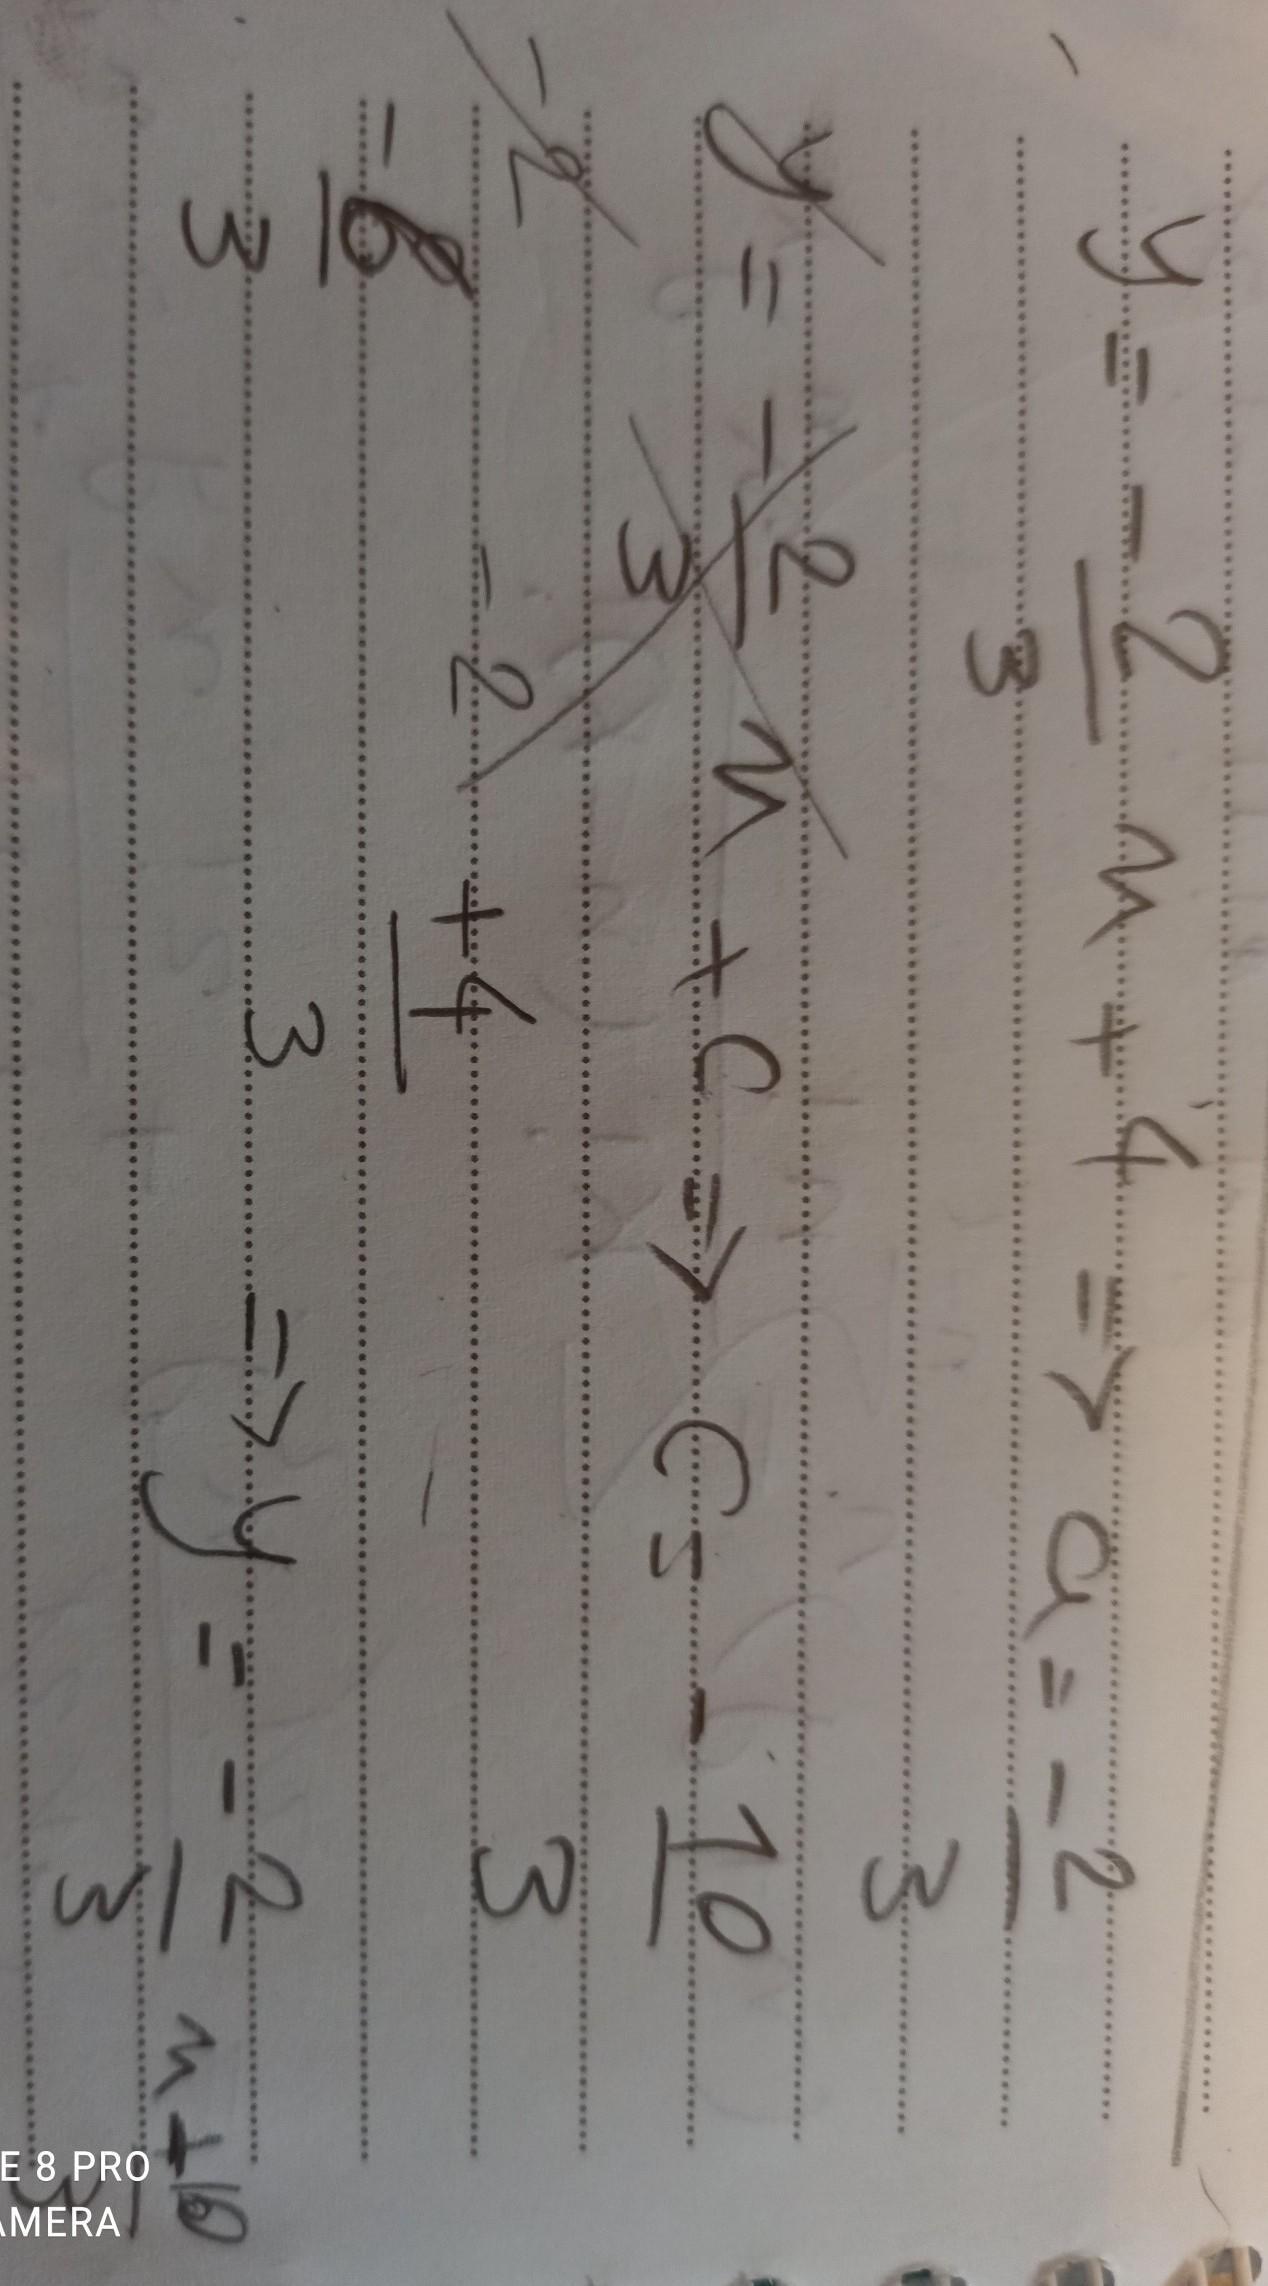 y = -2/3 x + 4 => a = -2/3
y = -2/3 x + c => c = -10/3
-2 -2 +4/3
-6/3 => y = -2/3 x + 10/3
E 8 PRO
AMERA